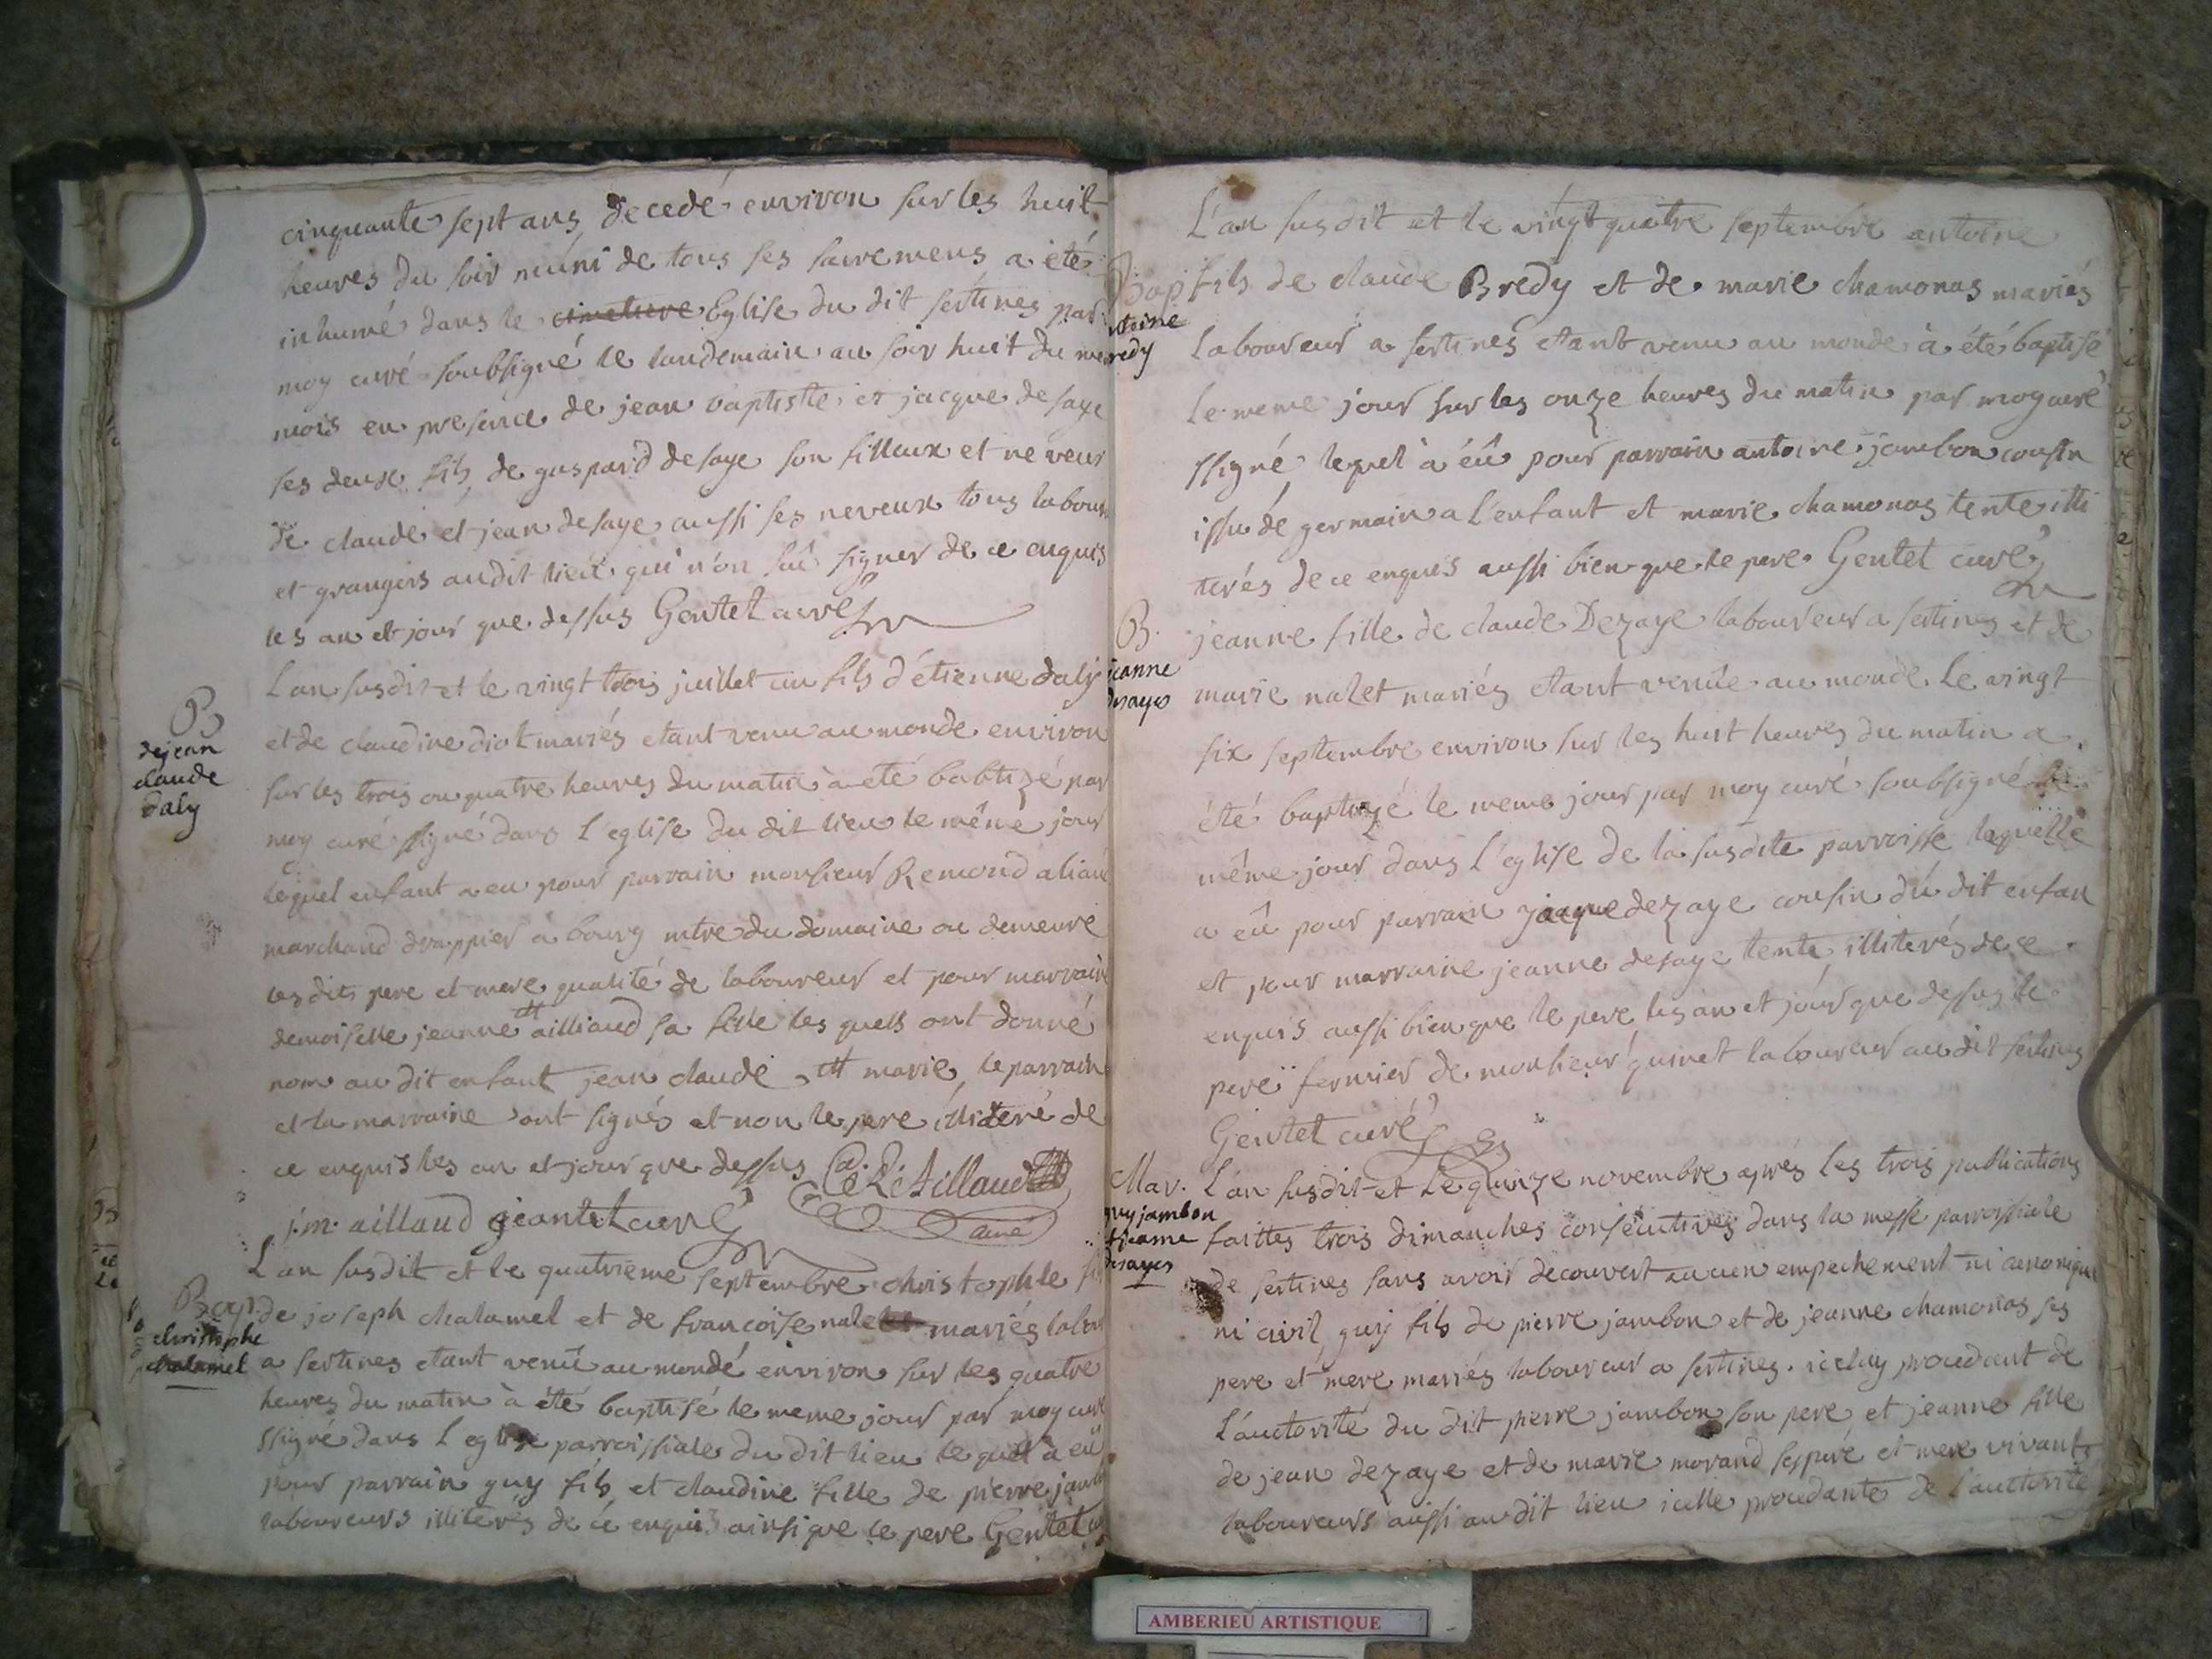 cinquante sept ans decedé environ sur les huit
heures du soir muni de tous ses sacremens a été
inhumé dans le cimetiere Eglise du dit sertines par
moy curé soubsigné le landemain au soir huit du
mois en presence de jean baptiste et jacque desaye
ses deux fils, de gaspard desaye son filleux et neveux
de claude et jean desaye aussi ses neveux tous labour
et grangers au dit lieu qui n'on sû signer de ce enquis
les an et jour que dessus Gentet curé
B
de jean
claude
daly
L'an susdit et le vingt trois juillet un fils d'étienne daly
et de claudine diot mariés etant venu au monde environ
sur les trois ou quatre heures du matin a été babtizé par
moy curé ssigné dans L'eglise du dit lieu le même jour
lequel enfant a eu pour parrain monsieur Remond aliaud
marchand drappier a bourg mtre du domaine ou demeure
les dits pere et mere qualité de laboureur et pour marraine
demoiselle jeanne ailliaud sa fille les quels ont donné
nom au dit enfant jean claude marie, le parrain
et la marraine ont signés et non le pere illiteré de
ce enquis les an et jour que dessus Aillaud
ainé
j.m. aillaud geantet curé
Bap.
christophe
chalamel
L'an susdit et le quatrieme septembre christophle
de joseph chalamel et de francoise nalet mariés
a sertines etant venû au monde environ sur les quatre
heures du matin à été baptisé le meme jour par moy curé
ssigné dans L'eglise parroissiale du dit lieu le quel à eû
pour parrain guy fils et claudine fille de pierre
laboureurs illiterés de ce enquis ainsi que le pere Gentet
Bap
L'an susdit et le vingt quatre septembre antoine
fils de claude Bredy et de marie chamonas mariés
laboureur a sertines etant venu au monde à été baptisé
le meme jour sur les onze heures du matin par moy curé
ssigné lequel à éû pour parrain antoine jambon cousin
issu de germain a L'enfant et marie chamonas tente illi
terés de ce enquis aussi bien que le pere Gentet curé
B.
jeanne
desaye
jeanne fille de claude Dezaye laboureur a sertines et de
marie nalet mariés etant venûe au monde le vingt
six septembre environ sur les huit heures du matin a
été baptizé le meme jour par moy curé soubsigné le
même jour dans L'eglise de la susdite parroisse laquelle
a eû pour parrain jacque dezaye cousin du dit enfan
et pour marraine jeanne desaye tente, illiterés de ce
enquis aussi bien que le pere les an et jour que dessus le
pere fermier de monsieur quinet laboureur au dit sertines
Gentet curé
Mar.
guy jambon
jeanne
desayes
L'an susdit et le quinze novembre après les trois publications
faittes trois dimanches consecutives dans la messe parroissiale
de sertines sans avoir decouvert aucun empechement ni canonique
ni civil guy fils de pierre jambon et de jeanne chamonas ses
pere et mere mariés laboureur a sertines. icelluy procedant de
L'auctorité du dit pierre jambon son pere, et jeanne fille
de jean dezaye et de marie morand ses pere et mere vivants
laboureurs aussi au dit lieu icelle procedante de l'auctorité
AMBERIEU ARTISTIQUE